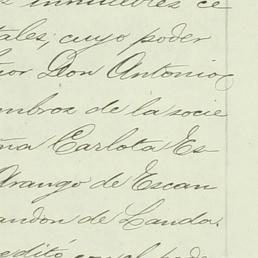 s inmuebles ce
tales, cuyo poder
ñor Don Antonio
mbros de la socie
ña Carlota Es
Arango de Escan
andon de Landa.
editó con el pode